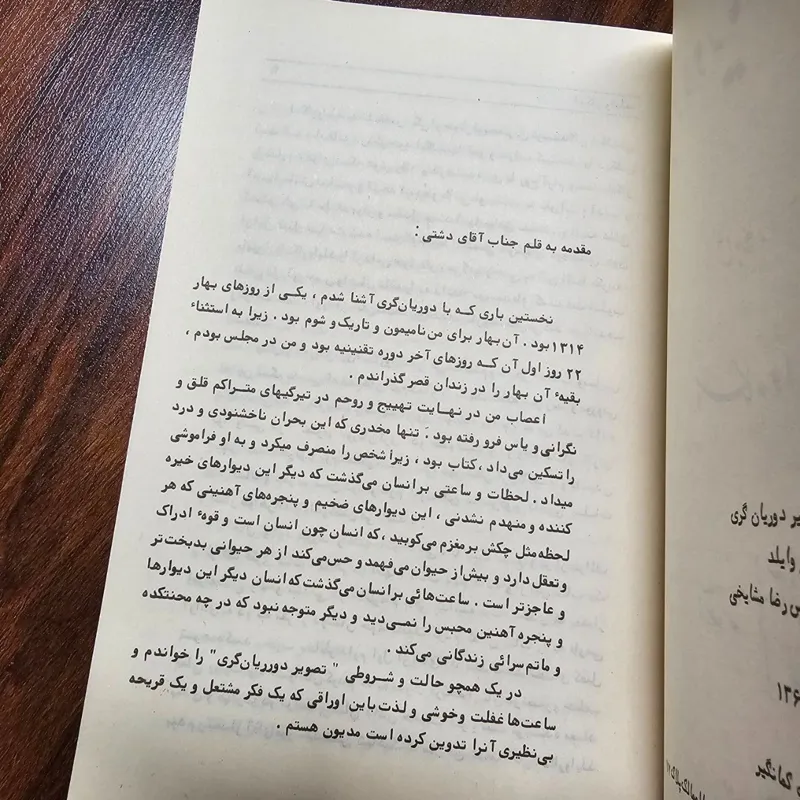 مقدمه به قلم جناب آقای دشتی :
نخستین باری کـه با دوریان‌گری آشنا شدم ، یکـی از روزهای بهار
۱۳۱۴ بود . آن بهار برای من نامیمون و تاریک و شوم بود . زیرا به استثناء
۲۲ روز اول آن کـه روزهای آخر دوره تقنینیه بود و من در مجلس بودم ،
بقیهٔ آن بهار را در زندان قصر گذراندم .
اعصاب من در نهـایت تهییج و روحم در تیرگیهای متـراکم قلق و
نگرانی و یاس فرو رفته بود . تنها مخدری که این بحران ناخشنودی و درد
را تسکین می‌داد ، کتاب بود ، زیرا شخص را منصرف میکرد و به او فراموشی
میداد . لحظات و ساعتی بر انسان می‌گذشت که دیگر این دیوارهای خیره
کننده و منهدم نشدنی ، این دیوارهای ضخیم و پنجره‌های آهنینی که هر
لحظه مثل چکش بر مغزم می‌کوبید ، که انسان چون انسان است و قوهٔ ادراک
و تعقل دارد و بیش از حیوان می‌فهمد و حس می‌کند از هر حیوانی بدبخت تر
و عاجزتر است . ساعت‌هائی بر انسان می‌گذشت که انسان دیگر این دیوارها
و پنجره آهنین محبس را نمـی‌دید و دیگر متوجه نبود که در چه محنتکده
و ماتم سرائی زندگانی می‌کند .
در یک همچو حالت و شـروطی " تصویر دورریان‌گری" را خواندم و
ساعت‌ها غفلت وخوشی و لذت باین اوراقی که یک فکر مشتعل و یک قریحه
بی‌نظیری آنرا تدوین کرده است مدیون هستم .
یر دوریان گری
وایلد
رضا مشایخی
۱۳۶